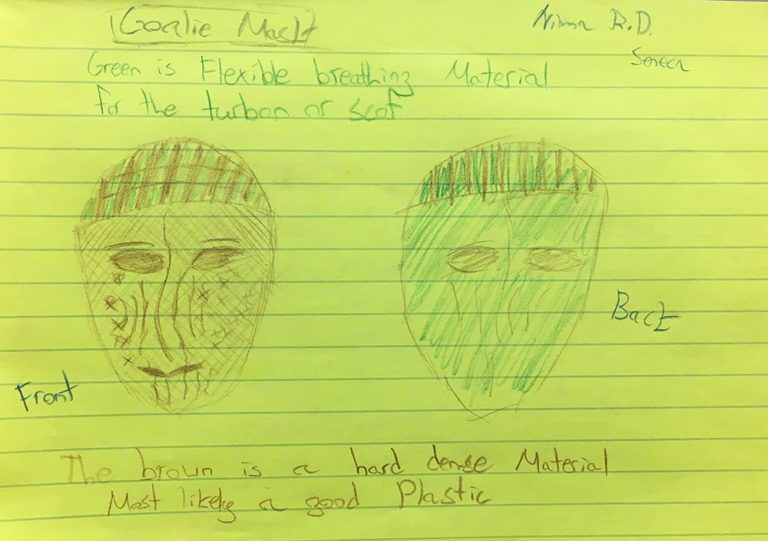 Goalie Mask
Nima R.D.
Seneca
Green is Flexible breathing Material
for the turban or scaf
Front
Back
The brown is a hard dense Material
Most likely a good Plastic